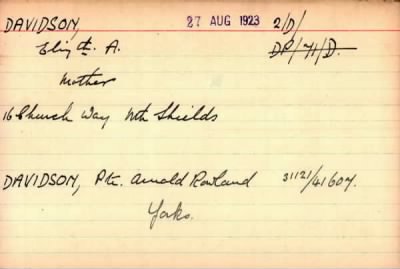 DAVIDSON, 27 AUG 1923 2/D/
Elizth. A. DP/71/D.
Mother
16 Church Way Nth Shields
DAVIDSON, Pte. Arnold Rowland 3/1121/41607.
Yorks.